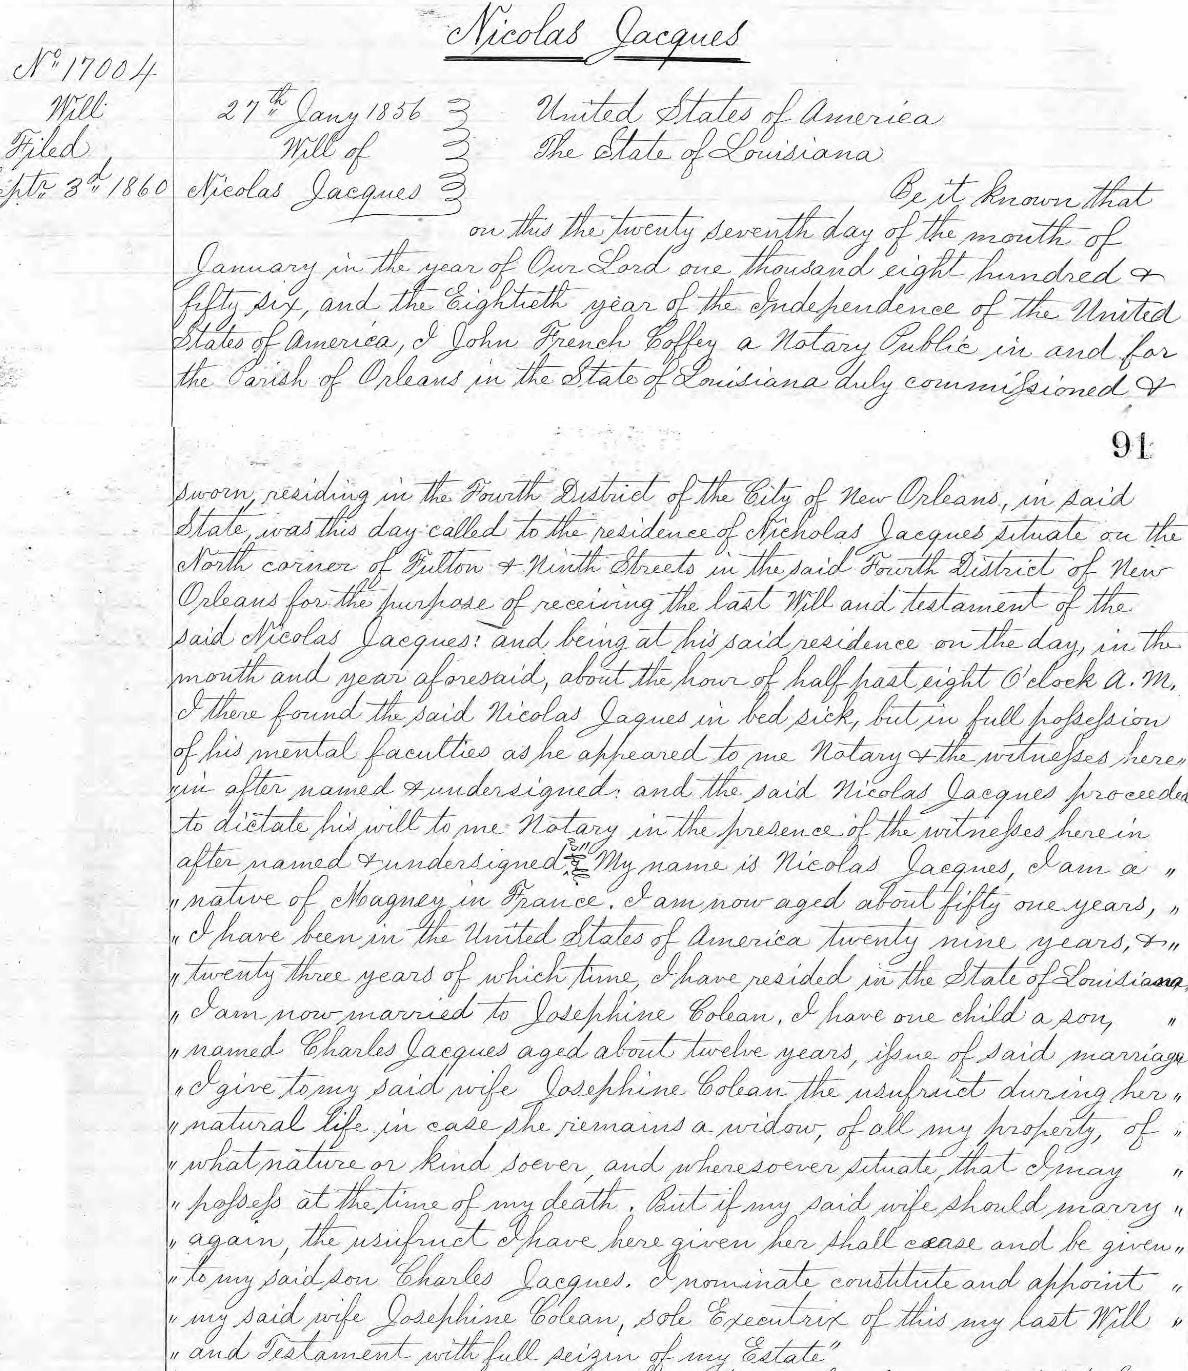 Nicolas Jacques
No 17004
Will
Filed
Septr 3d 1860
27th Jany 1856
Will of
Nicolas Jacques
United States of America
The State of Louisiana
Be it known that
on this the twenty seventh day of the month of
January in the year of Our Lord one thousand eight hundred &
fifty six, and the Eightieth year of the Independence of the United
States of America, I John French Coffey a Notary Public in and for
the Parish of Orleans in the State of Louisiana duly commissioned &
91
sworn, residing in the Fourth District of the City of New Orleans, in said
State, was this day called to the residence of Nicholas Jacques situate on the
North corner of Fulton & Ninth Streets in the said Fourth District of New
Orleans for the purpose of receiving the last Will and testament of the
said Nicolas Jacques: and being at his said residence on the day, in the
month and year aforesaid, about the hour of half past eight O'clock A.M.
I there found the said Nicolas Jaques in bed sick, but in full possession
of his mental faculties as he appeared to me Notary & the witnesses here"
"in after named & undersigned: and the said Nicolas Jacques proceeded
to dictate his will to me Notary in the presence of the witnesses herein
after named & undersigned "My name is Nicolas Jacques, I am a "
" native of Magney in France. I am now aged about fifty one years, "
" I have been in the United States of America twenty nine years, & "
" twenty three years of which time, I have resided in the State of Louisiana
" I am now married to Josephine Colean. I have one child a son, "
" named Charles Jacques aged about twelve years, issue of said marriage
" I give to my said wife Josephine Colean the usufruct during her "
" natural life in case she remains a widow, of all my property, of "
" what nature or kind soever, and wheresoever situate, that I may "
" possess at the time of my death. But if my said wife should marry "
" again, the usufruct I have here given her shall cease and be given "
" to my said son Charles Jacques. I nominate constitute and appoint "
" my said wife Josephine Colean, sole Executrix of this my last Will "
" and Testament with full seizin of my Estate"